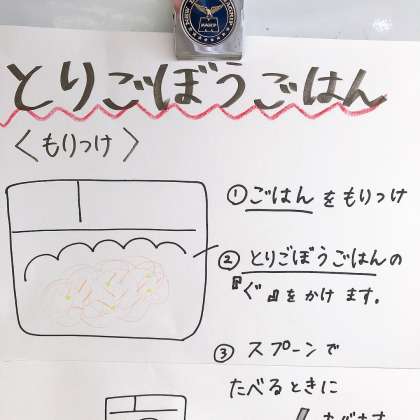 とりごぼうごはん
〈もりつけ〉
①ごはんをもりつけ
②とりごぼうごはんの
『ぐ』をかけます。
③スプーンで
たべるときに